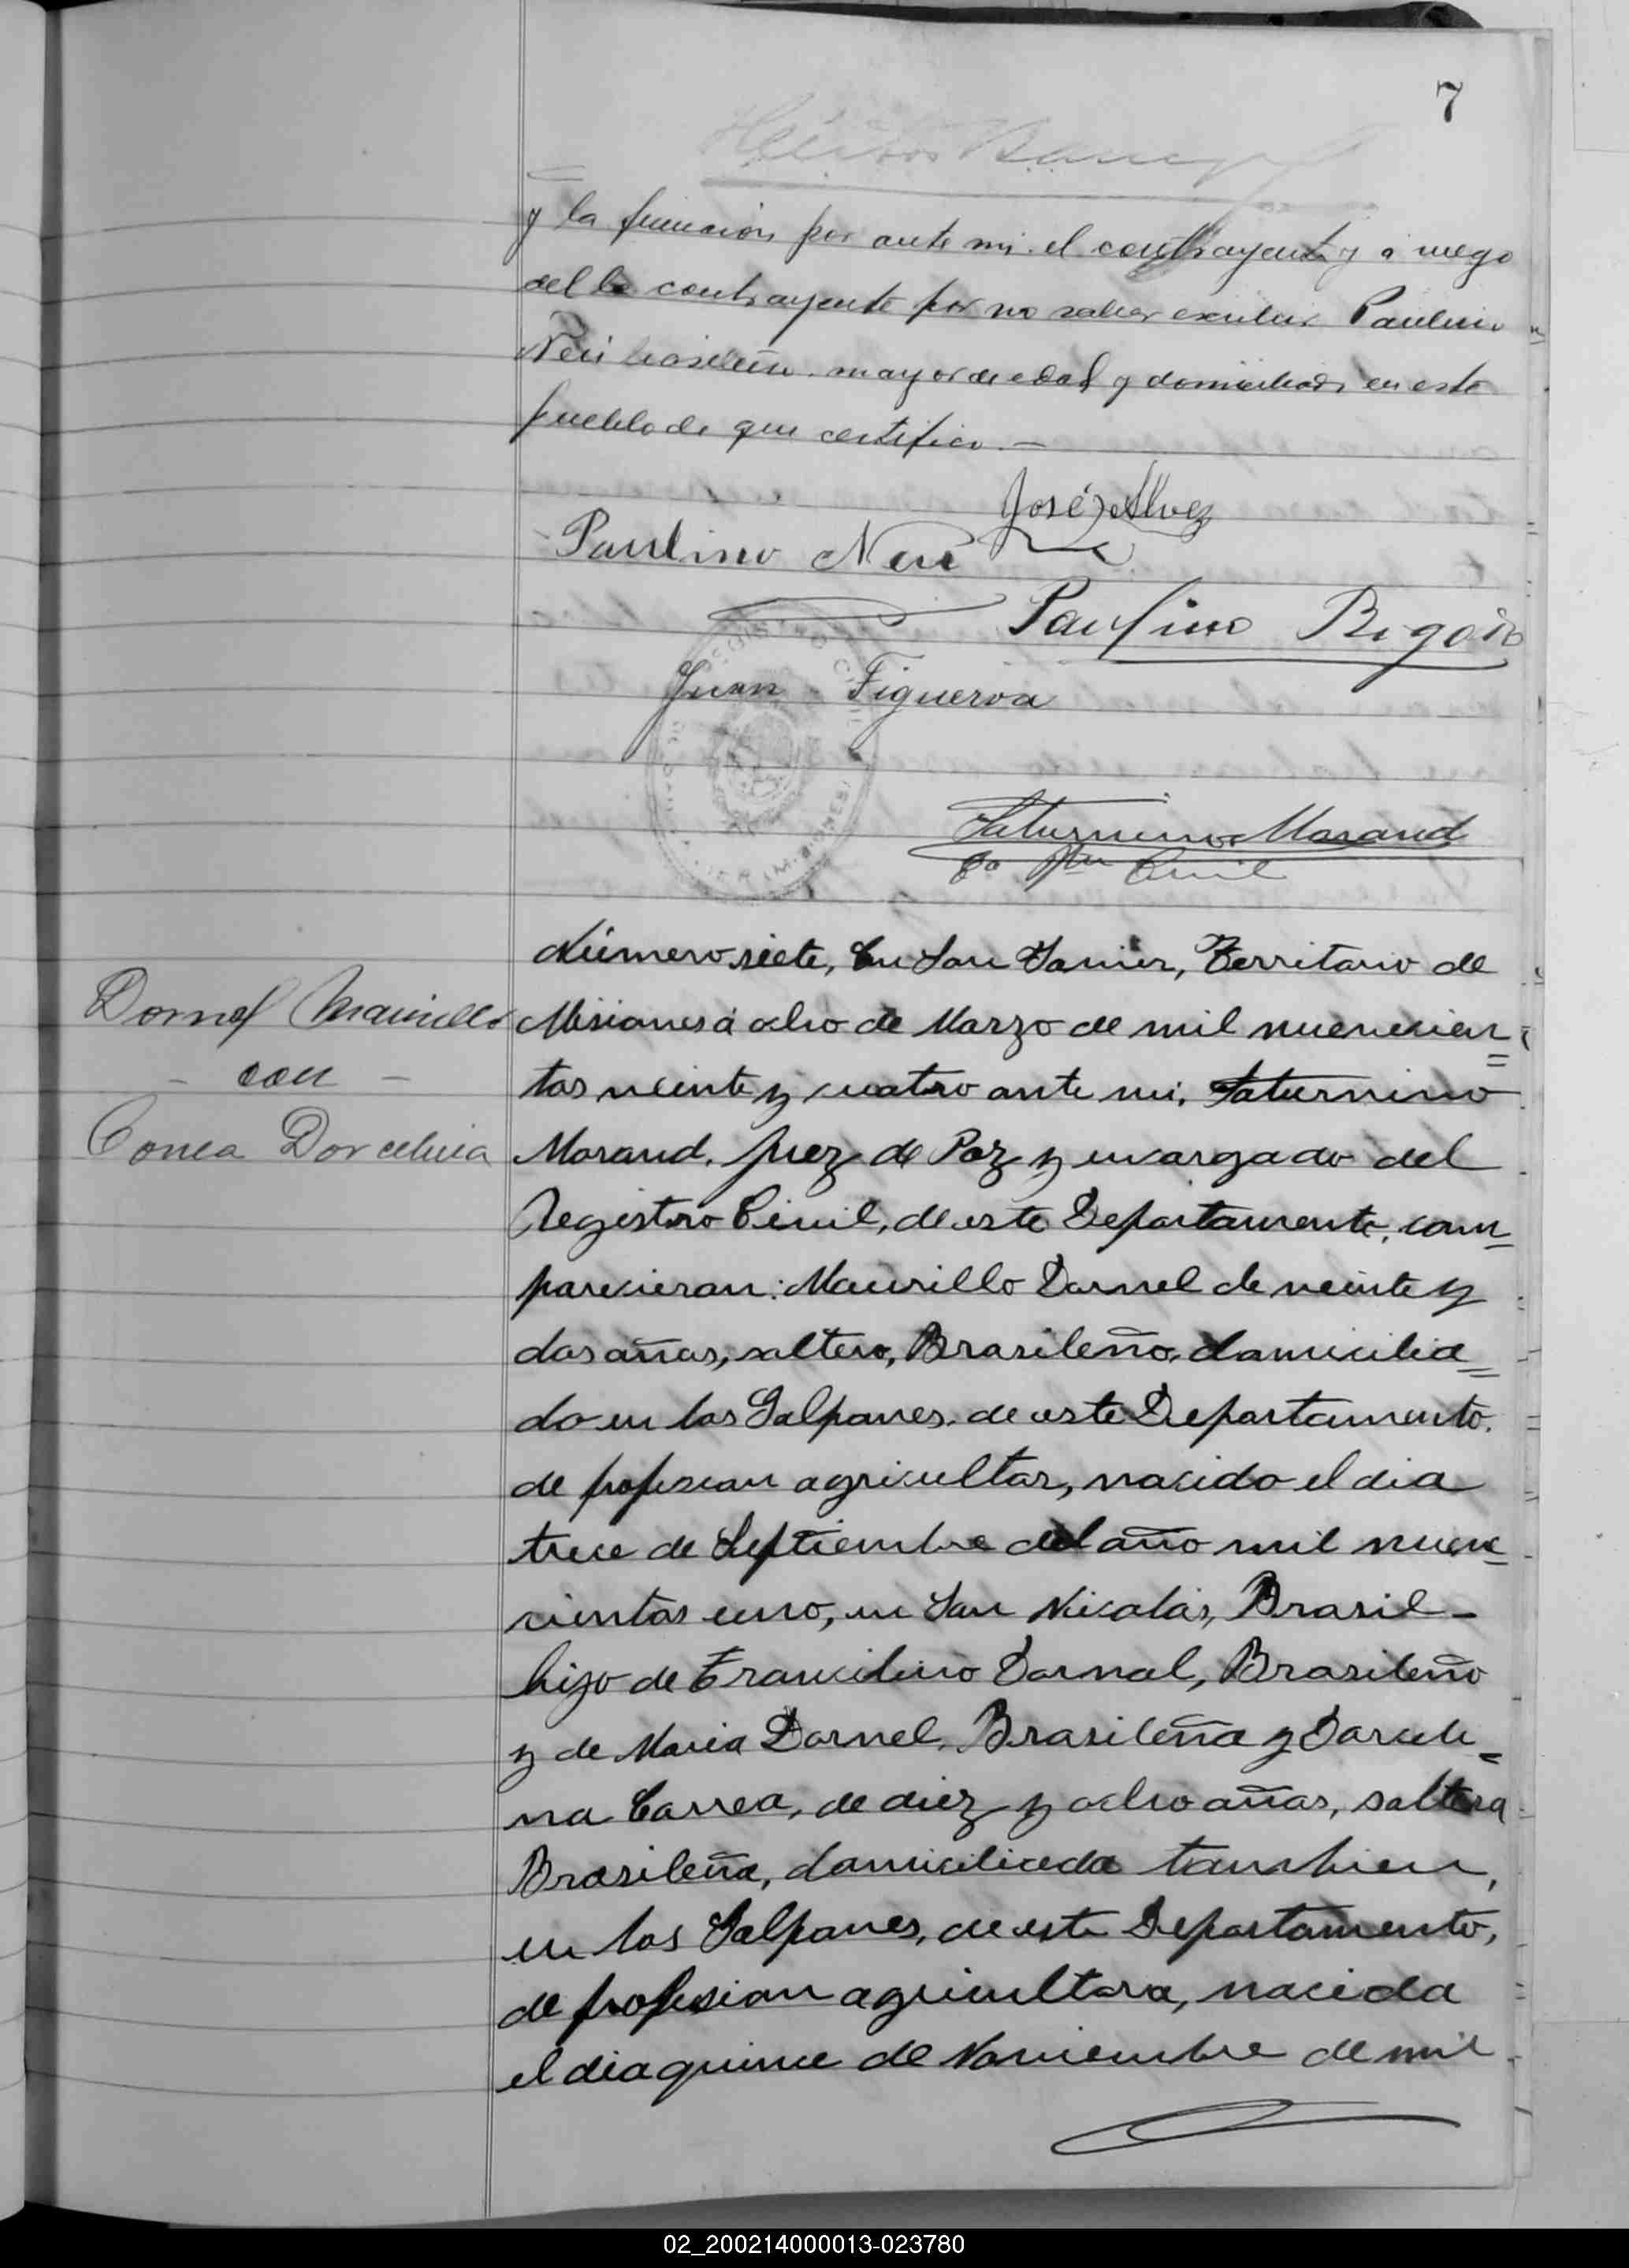 7
y la firmaron por ante mi el contrayente y a ruego
del la contrayente por no saber escribir Paulino
Neri brasileño mayor de edad y domiciliado en este
pueblo de que certifico. —
José Alvez
Paulino Neri
Paulino Rigois
Juan Figueroa
Saturnino Morand
Civil
Número siete, En San Javier, Territorio de
Dornel Maurillo
Misiones á ocho de Marzo de mil novecien=
- con -
tos veinte y cuatro ante mi, Saturnino
Correa Dorcelina
Morand, Juez de Paz y encargado del
Registro Civil, de este Departamento, com=
parecieron: Maurillo Dornel de veinte y
dos años, soltero, Brasileño, domicilia=
do en los Galpones, de este Departamento.
de profesion agricultor, nacido el dia
trece de Septiembre del año mil nove=
cientos uno, en San Nicolás, Brasil -
hijo de Francilino Dornal, Brasileño
y de Maria Dornel, Brasileña y Dorceli=
na Correa, de diez y ocho años, soltera
Brasileña, domiciliada tambien,
en los Galpones, de este Departamento,
de profesion agricultora, nacida
el dia quince de Noviembre de mil
02_200214000013-023780